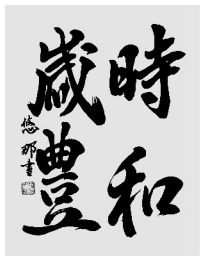 時和
歳豊
悠那書